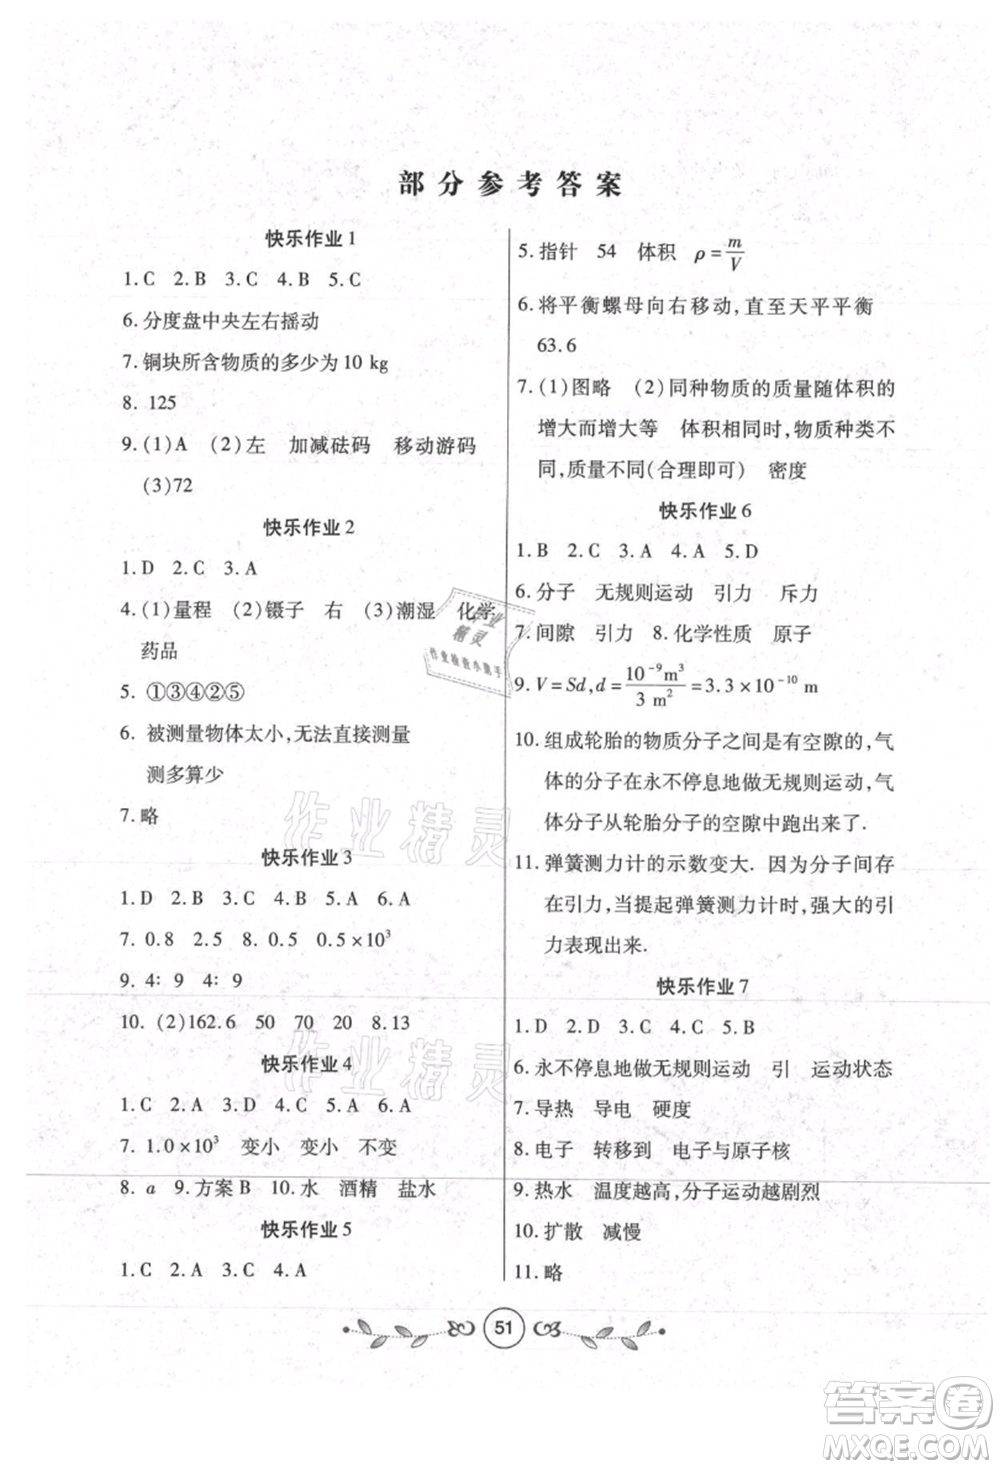 部分参考答案
快乐作业 1
1. C 2. B 3. C 4. B 5. C
6. 分度盘中央左右摇动
7. 铜块所含物质的多少为 10 kg
8. 125
9. (1)A (2)左 加减砝码 移动游码
(3)72
快乐作业 2
1. D 2. C 3. A
4. (1)量程 (2)镊子 右 (3)潮湿 化学
药品
5. ①③④②⑤
6. 被测量物体太小,无法直接测量
测多算少
7. 略
快乐作业 3
1. D 2. B 3. C 4. C 5. A 6. A
7. 0.8 2.5 8. 0.5 0.5×10³
9. 4∶9 4∶9
10. (2)162.6 50 70 20 8.13
快乐作业 4
1. C 2. A 3. D 4. C 5. C 6. A
7. 1.0×10³ 变小 变小 不变
8. a 9. 方案 B 10. 水 酒精 盐水
快乐作业 5
1. C 2. A 3. C 4. A
5. 指针 54 体积 ρ=m/V
6. 将平衡螺母向右移动,直至天平平衡
63.6
7. (1)图略 (2)同种物质的质量随体积的
增大而增大等 体积相同时,物质种类不
同,质量不同(合理即可) 密度
快乐作业 6
1. B 2. C 3. A 4. A 5. D
6. 分子 无规则运动 引力 斥力
7. 间隙 引力 8. 化学性质 原子
9. V=Sd,d=10⁻⁹m³/3 m²=3.3×10⁻¹⁰ m
10. 组成轮胎的物质分子之间是有空隙的,气
体的分子在永不停息地做无规则运动,气
体分子从轮胎分子的空隙中跑出来了.
11. 弹簧测力计的示数变大. 因为分子间存
在引力,当提起弹簧测力计时,强大的引
力表现出来.
快乐作业 7
1. D 2. D 3. C 4. C 5. B
6. 永不停息地做无规则运动 引 运动状态
7. 导热 导电 硬度
8. 电子 转移到 电子与原子核
9. 热水 温度越高,分子运动越剧烈
10. 扩散 减慢
11. 略
51
作业精灵
作业精灵
作业精灵
作业检查小帮手
答案卷
MXQE.COM